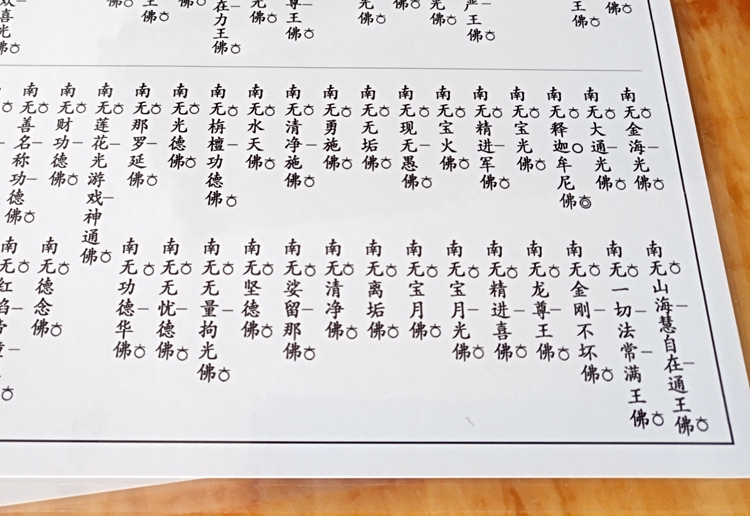 王佛
王佛
光佛
光佛
尊王佛
在力王佛
王佛
喜光佛
南无金海光佛
南无大通光佛
南无释迦牟尼佛
南无宝光佛
南无精进军佛
南无宝火佛
南无现无愚佛
南无无垢佛
南无勇施佛
南无清净施佛
南无水天佛
南无栴檀功德佛
南无光德佛
南无那罗延佛
南无莲花光游戏神通佛
南无财功德佛
南无善名称功德佛
南无山海慧自在通王佛
南无一切法常满王佛
南无金刚不坏佛
南无龙尊王佛
南无精进喜佛
南无宝月光佛
南无宝月佛
南无离垢佛
南无清净佛
南无娑留那佛
南无坚德佛
南无无量拘光佛
南无无忧德佛
南无功德华佛
南无德念佛
南无红